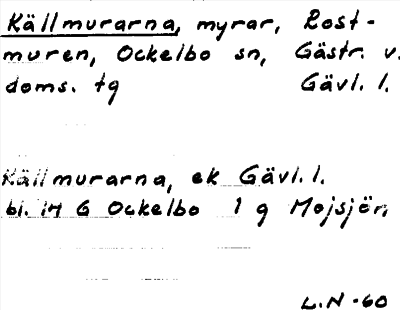 Källmurarna, myrar, Rost-
muren, Ockelbo sn, Gästr. v.
doms. tg Gävl. l.
Källmurarna, ek Gävl. l.
bl. 14 G Ockelbo 1 g Mojsjön
L.N -60